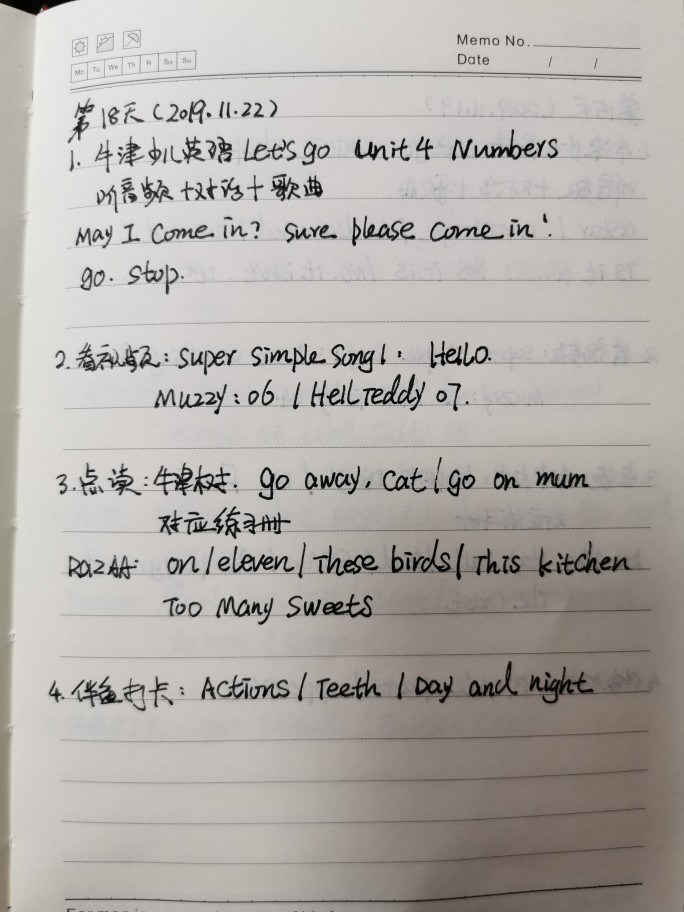 Memo No.
Mo Tu We Th Fr Sa Su
Date / /
第18天(2019.11.22)
1. 牛津少儿英语 Let's go Unit 4 Numbers
听音频+对话+歌曲
May I come in? sure please come in!
go. stop.
2.看视频: super simple song 1: Hello.
Muzzy: 06 / Hell Teddy 07.
3.点读:牛津树. go away, cat / go on mum
对应练习册
RazAA: on / eleven / These birds / This kitchen
Too Many Sweets
4.伴鱼打卡: Actions / Teeth / Day and night